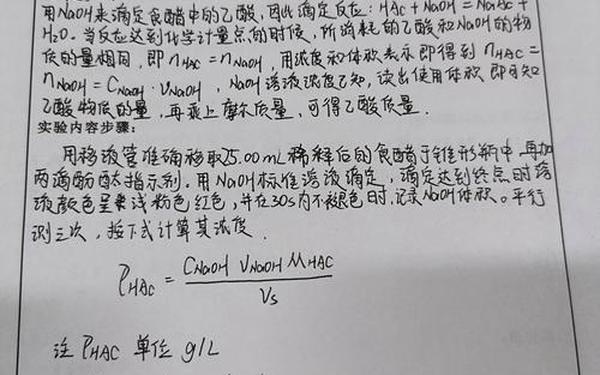 用NaOH来滴定食醋中的乙酸，因此滴定反应：HAc + NaOH = NaAc +
H₂O。当反应达到化学计量点的时候，所消耗的乙酸和NaOH的物
质的量相同，即 nHAC = nNaOH，用浓度和体积表示即得到 nHAC =
nNaOH = CNaOH · VNaOH，NaOH溶液浓度已知，读出使用体积即可知
乙酸物质的量，再乘上摩尔质量，可得乙酸质量.
实验内容步骤：
用移液管准确移取25.00mL稀释后的食醋于锥形瓶中，再加
两滴酚酞指示剂。用NaOH标准溶液滴定，滴定达到终点时溶
液颜色呈浅粉色红色，并在30s内不褪色时，记录NaOH体积。平行
测三次，按下式计算其浓度.
ρHAc = CNaOH VNaOH MHAC / Vs
注 ρHAC 单位 g/L